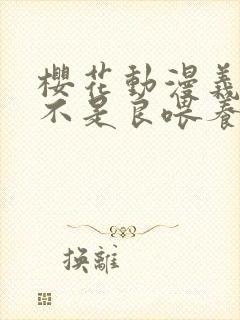 櫻花動漫義
不是良喂養
換離